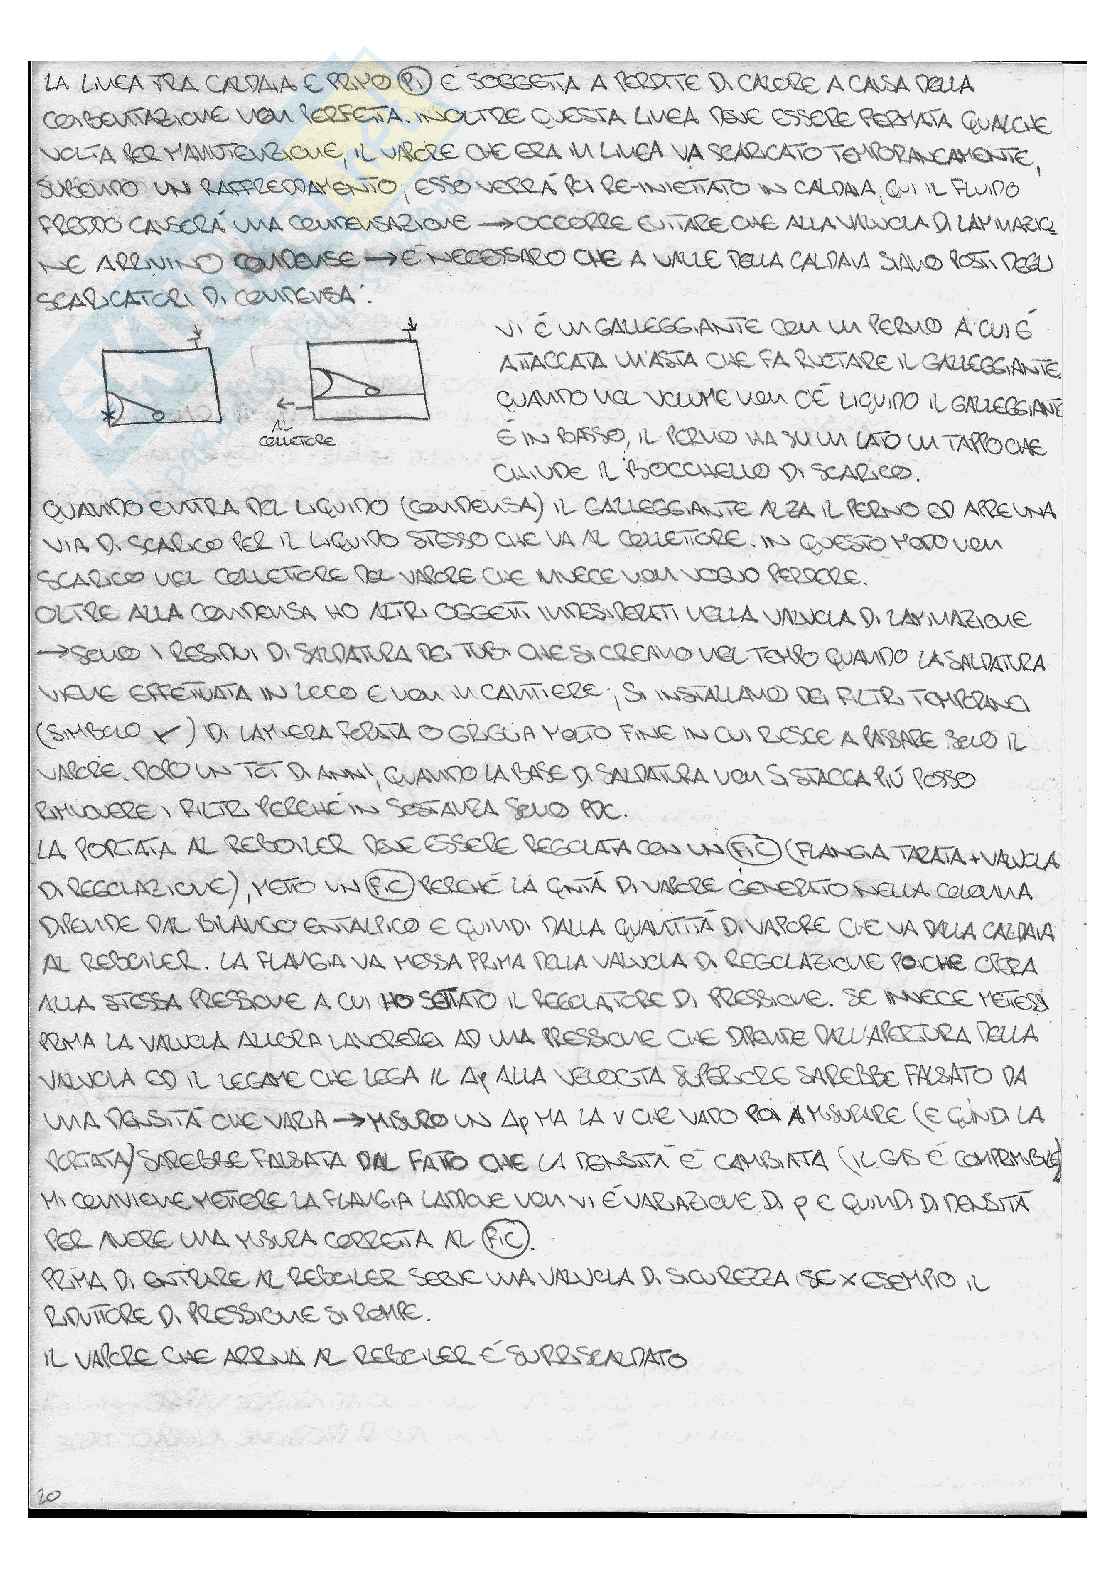 LA LINEA TRA CALDAIA E PRIMO (Pi) È SOGGETTA A PERDITE DI CALORE A CAUSA DELLA
COIBENTAZIONE NON PERFETTA. INOLTRE QUESTA LINEA DEVE ESSERE FERMATA QUALCHE
VOLTA PER MANUTENZIONE, IL VAPORE CHE ERA IN LINEA VA SCARICATO TEMPORANEAMENTE,
SUBENDO UN RAFFREDDAMENTO, ESSO VERRÀ POI RE-INIETTATO IN CALDAIA, QUI IL FLUIDO
FREDDO CAUSERÀ UNA CONDENSAZIONE → OCCORRE EVITARE CHE ALLA VALVOLA DI LAMINAZIO
NE ARRIVINO CONDENSE → È NECESSARIO CHE A VALLE DELLA CALDAIA SIANO POSTI DEGLI
SCARICATORI DI CONDENSA:
VI È UN GALLEGGIANTE CON UN PERNO A CUI È
ATTACCATA UN'ASTA CHE FA RUOTARE IL GALLEGGIANTE.
QUANDO NEL VOLUME NON C'È LIQUIDO IL GALLEGGIANTE
È IN BASSO, IL PERNO HA SU UN LATO UN TAPPO CHE
CHIUDE IL BOCCHELLO DI SCARICO.
AL
COLLETTORE
QUANDO ENTRA DEL LIQUIDO (CONDENSA) IL GALLEGGIANTE ALZA IL PERNO ED APRE UNA
VIA DI SCARICO PER IL LIQUIDO STESSO CHE VA AL COLLETTORE. IN QUESTO MODO NON
SCARICO NEL COLLETTORE DEL VAPORE CHE INVECE NON VOGLIO PERDERE.
OLTRE ALLA CONDENSA HO ALTRI OGGETTI INDESIDERATI NELLA VALVOLA DI LAMINAZIONE
→ SONO I RESIDUI DI SALDATURA DEI TUBI CHE SI CREANO NEL TEMPO QUANDO LA SALDATURA
VIENE EFFETTUATA IN LOCO E NON IN CANTIERE; SI INSTALLANO DEI FILTRI TEMPORANEI
(SIMBOLO ) DI LAMIERA FORATA O GRIGLIA MOLTO FINE IN CUI RIESCE A PASSARE SOLO IL
VAPORE. DOPO UN TOT DI ANNI, QUANDO LA BASE DI SALDATURA NON SI STACCA PIÙ POSSO
RIMUOVERE I FILTRI PERCHÉ IN SOSTANZA SONO PDC.
LA PORTATA AL REBOILER DEVE ESSERE REGOLATA CON UN (FiC) (FLANGIA TARATA + VALVOLA
DI REGOLAZIONE), METTO UN (FiC) PERCHÉ LA QNTÀ DI VAPORE GENERATO NELLA COLONNA
DIPENDE DAL BILANCIO ENTALPICO E QUINDI DALLA QUANTITÀ DI VAPORE CHE VA DALLA CALDAIA
AL REBOILER. LA FLANGIA VA MESSA PRIMA DELLA VALVOLA DI REGOLAZIONE POICHÉ OPERA
ALLA STESSA PRESSIONE A CUI HO SETTATO IL REGOLATORE DI PRESSIONE. SE INVECE METTESSI
PRIMA LA VALVOLA ALLORA LAVOREREI AD UNA PRESSIONE CHE DIPENDE DALL'APERTURA DELLA
VALVOLA ED IL LEGAME CHE LEGA IL Δp ALLA VELOCITÀ SUPERIORE SAREBBE FALSATO DA
UNA DENSITÀ CHE VARIA → MISURO UN Δp MA LA v CHE VADO POI A MISURARE (E QUINDI LA
PORTATA) SAREBBE FALSATA DAL FATTO CHE LA DENSITÀ È CAMBIATA (IL GAS È COMPRIMIBILE)
MI CONVIENE METTERE LA FLANGIA LADDOVE NON VI È VARIAZIONE DI p E QUINDI DI DENSITÀ
PER AVERE UNA MISURA CORRETTA AL (FiC).
PRIMA DI ENTRARE AL REBOILER SERVE UNA VALVOLA DI SICUREZZA SE X ESEMPIO IL
RIDUTTORE DI PRESSIONE SI ROMPE.
IL VAPORE CHE ARRIVA AL REBOILER È SURRISCALDATO
20